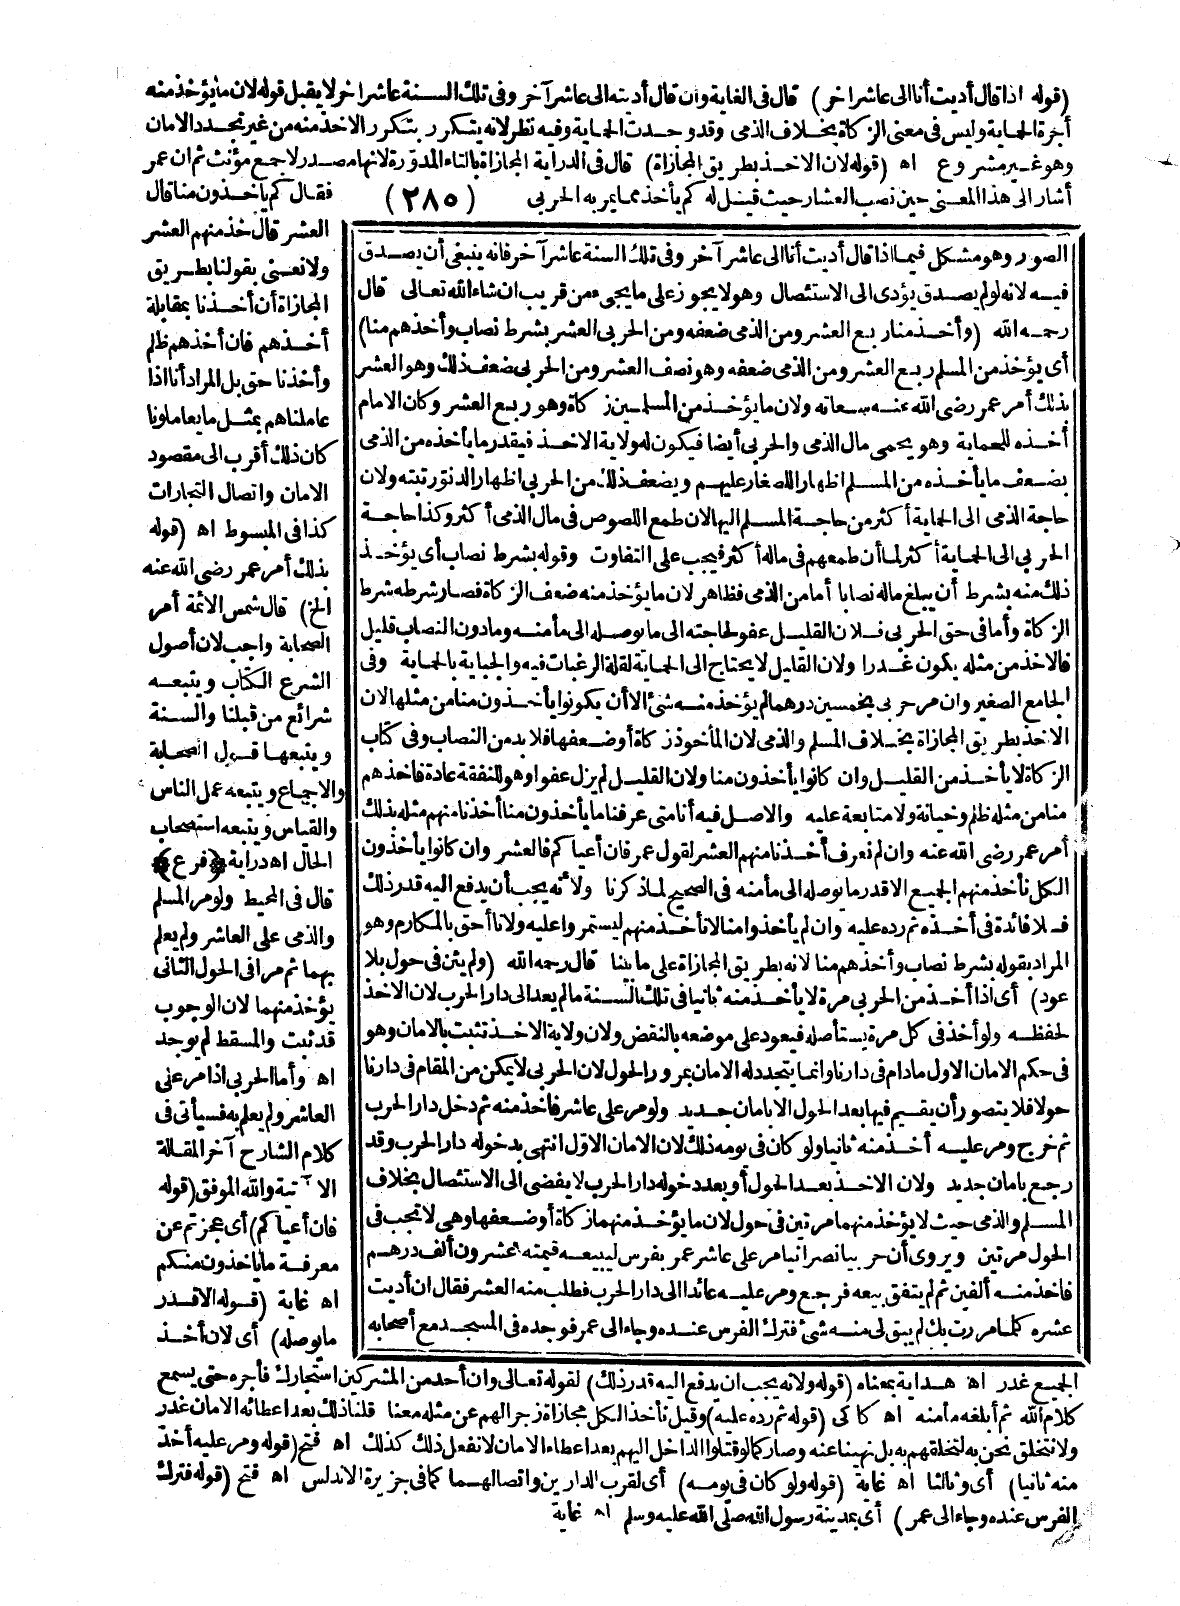 (قوله اذا قال أديت أنا الى عاشر اخر) قال فى الغاية وان قال أديته الى عاشر آخر وفى تلك السنة عاشر اخر لا يقبل قوله لان ما يؤخذ منه
أجرة الحماية وليس فى معنى الزكاة بخلاف الذمى وقد وحدت الحماية وفيه نظر لانه يتكرر بتكرر الاخذ منه من غير تجدد الامان
وهو غير مشروع اه (قوله لان الاخذ بطريق المجازاة) قال فى الدراية المجازاة بالتاء المدورة لانها مصدر لا جمع مؤنث ثم ان عمر
أشار الى هذا المعنى حين نصب العشار حيث قيل له كم يأخذ مما يمر به الحربى (٢٨٥) فقال كم يأخذون منا قال
العشر قال خذ منهم العشر
ولا نعنى بقولنا بطريق
المجازاة أن أخذنا بمقابلة
أخذهم فان أخذهم ظلم
وأخذنا حق بل المراد أنا اذا
عاملناهم بمثل ما يعاملونا
كان ذلك أقرب الى مقصود
الامان واتصال التجارات
كذا فى المبسوط اه (قوله
بذلك أمر عمر رضى الله عنه
الخ) قال شمس الائمة أمر
الصحابة واجب لان أصول
الشرع الكتاب ويتبعه
شرائع من قبلنا والسنة
ويتبعها قول الصحابة
والاجماع ويتبعه عمل الناس
والقياس ويتبعه استصحاب
الحال اه دراية ﴿فرع﴾
قال فى المحيط ولو مر المسلم
والذمى على العاشر ولم يعلم
بهما ثم مرا فى الحول الثانى
يؤخذ منهما لان الوجوب
قد ثبت والمسقط لم يوجد
اه وأما الحربى اذا مر عنى
العاشر ولم يعلم به فسيأتى فى
كلام الشارح آخر المقالة
الاتية والله الموفق (قوله
فان أعياكم) أى عجزتم عن
معرفة ما يأخذون منكم
اه غاية (قوله الا قدر
ما يوصله) أى لان أخذ
الصور وهو مشكل فيما اذا قال أديت أنا الى عاشر آخر وفى تلك السنة عاشر آخر فانه ينبغى أن يصدق
فيه لانه لو لم يصدق يؤدى الى الاستئصال وهو لا يجوز على ما يجىء من قريب ان شاء الله تعالى قال
رحمه الله (وأخذ منا ربع العشر ومن الذمى ضعفه ومن الحربى العشر بشرط نصاب وأخذهم منا)
أى يؤخذ من المسلم ربع العشر ومن الذمى ضعفه وهو نصف العشر ومن الحربى ضعف ذلك وهو العشر
بذلك أمر عمر رضى الله عنه سعاته ولان ما يؤخذ من المسلمين زكاة وهو ربع العشر وكان الامام
أخذه للحماية وهو يحمى مال الذمى والحربى أيضا فيكون له ولاية الاخذ فيقدر ما يأخذه من الذمى
بضعف ما يأخذه من المسلم اظهارا للصغار عليهم ويضعف ذلك من الحربى اظهارا لدنو رتبته ولان
حاجة الذمى الى الحماية أكثر من حاجة المسلم اليها لان طمع اللصوص فى مال الذمى أكثر وكذا حاجة
الحربى الى الحماية أكثر لما أن طمعهم فى ماله أكثر فيجب على التفاوت وقوله بشرط نصاب أى يؤخذ
ذلك منه بشرط أن يبلغ ماله نصابا أما من الذمى فظاهر لان ما يؤخذ منه ضعف الزكاة فصار شرطه شرط
الزكاة وأما فى حق الحربى فلان القليل عفو لحاجته الى ما يوصله الى مأمنه وما دون النصاب قليل
فالاخذ من مثله يكون غدرا ولان القليل لا يحتاج الى الحماية لقلة الرغبات فيه والجباية بالحماية وفى
الجامع الصغير وان مر حربى بخمسين درهما لم يؤخذ منه شئ الا أن يكونوا يأخذون منا من مثلها لان
الاخذ بطريق المجازاة بخلاف المسلم والذمى لان المأخوذ زكاة أو ضعفها فلا بد من النصاب وفى كتاب
الزكاة لا يأخذ من القليل وان كانوا يأخذون منا ولان القليل لم يزل عفوا وهو للنفقة عادة فاخذهم
منا من مثله ظلم وخيانة ولا متابعة عليه والاصل فيه أنا متى عرفنا ما يأخذون منا أخذنا منهم مثله بذلك
أمر عمر رضى الله عنه وان لم نعرف أخذنا منهم العشر لقول عمر فان أعياكم فالعشر وان كانوا يأخذون
الكل نأخذ منهم الجميع الا قدر ما يوصله الى مأمنه فى الصحيح لما ذكرنا ولانه يجب أن يدفع اليه قدر ذلك
فلا فائدة فى أخذه ثم رده عليه وان لم يأخذوا منا لا نأخذ منهم ليستمروا عليه ولانا أحق بالمكارم وهو
المراد بقوله بشرط نصاب وأخذهم منا لانه بطريق المجازاة على ما بينا قال رحمه الله (ولم يثن فى حول بلا
عود) أى اذا أخذ من الحربى مرة لا يأخذ منه ثانيا فى تلك السنة ما لم يعد الى دار الحرب لان الاخذ
لحفظه ولو أخذ فى كل مرة يستأصله فيعود على موضوعه بالنقض ولان ولاية الاخذ تثبت بالامان وهو
فى حكم الامان الاول ما دام فى دارنا وانما يتجدد له الامان بمرور الحول لان الحربى لا يمكن من المقام فى دارنا
حولا فلا يتصور أن يقيم فيها بعد الحول الا بامان جديد ولو مر على عاشر فاخذ منه ثم دخل دار الحرب
ثم خرج ومر عليه أخذ منه ثانيا ولو كان فى يومه ذلك لان الامان الاول انتهى بدخوله دار الحرب وقد
رجع بامان جديد ولان الاخذ بعد الحول أو بعد دخوله دار الحرب لا يفضى الى الاستئصال بخلاف
المسلم والذمى حيث لا يؤخذ منهما مرتين فى حول لان ما يؤخذ منهما زكاة أو ضعفها وهى لا تجب فى
الحول مرتين ويروى أن حربيا نصرانيا مر على عاشر عمر بفرس ليبيعه قيمته عشرون ألف درهم
فاخذ منه ألفين ثم لم يتفق بيعه فرجع ومر عليه عائدا الى دار الحرب فطلب منه العشر فقال ان أديت
عشره كلما مررت بك لم يبق لى منه شئ فترك الفرس عنده وجاء الى عمر فوجده فى المسجد مع أصحابه
الجميع غدر اه هداية بمعناه (قوله ولانه يجب ان يدفع اليه قدر ذلك) لقوله تعالى وان أحد من المشركين استجارك فأجره حتى يسمع
كلام الله ثم أبلغه مأمنه اه كاكى (قوله ثم رده عليه) وقيل نأخذ الكل مجازاة زجرا لهم عن مثله معنا قلنا ذلك بعد اعطائه الامان غدر
ولا نتخلق نحن به لتخلقهم به بل نهينا عنه وصار كما لو قتلوا الداخل اليهم بعد اعطاء الامان لا نفعل ذلك كذلك اه فتح (قوله ومر عليه أخذ
منه ثانيا) أى وثالثا اه غاية (قوله ولو كان فى يومه) أى لقرب الدارين واتصالهما كما فى جزيرة الاندلس اه فتح (قوله فترك
الفرس عنده وجاء الى عمر) أى بمدينة رسول الله صلى الله عليه وسلم اه غاية